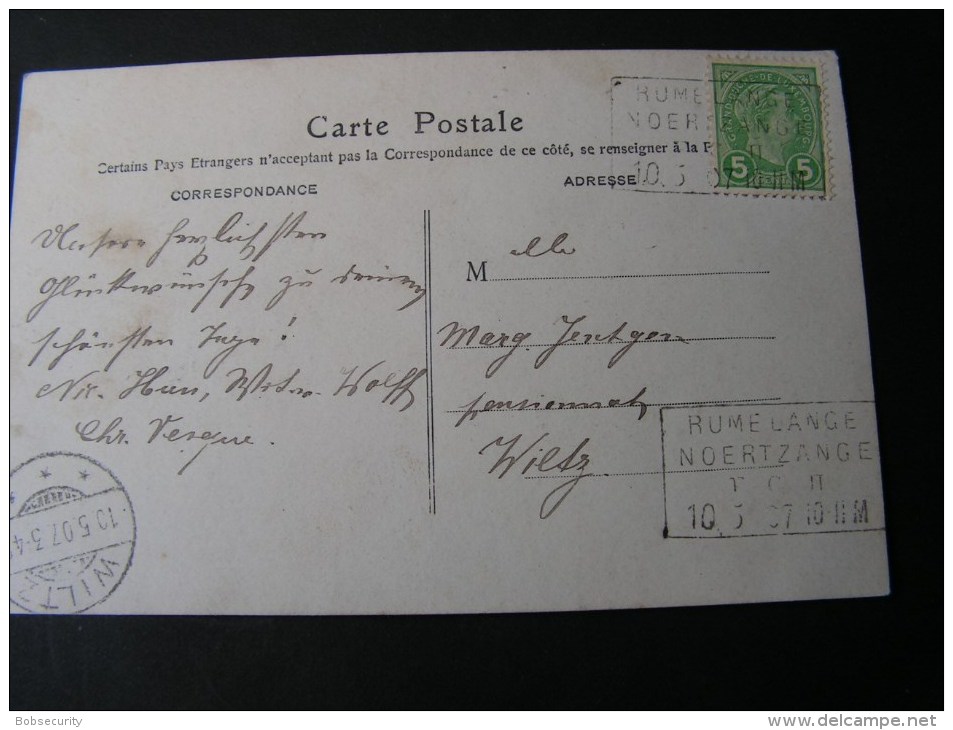 Carte Postale
Certains Pays Etrangers n'acceptant pas la Correspondance de ce côté, se renseigner à la P
CORRESPONDANCE
ADRESSE
RUMELANGE
NOERTZANGE
10 5 07 10-11 M
GRAND-DUCHE-DE LUXEMBOURG
5 5
Unsere herzlichsten
Glückwünsche zu deinem
schönsten Tage!
Nic. Wolff
Chr.
M elle
Marg. Jentgen
pensionnat
Wiltz.
RUMELANGE
NOERTZANGE
10 5 07 10-11 M
10.5.07.3-4
WILTZ
Bobsecurity
http://www.delcampe.net